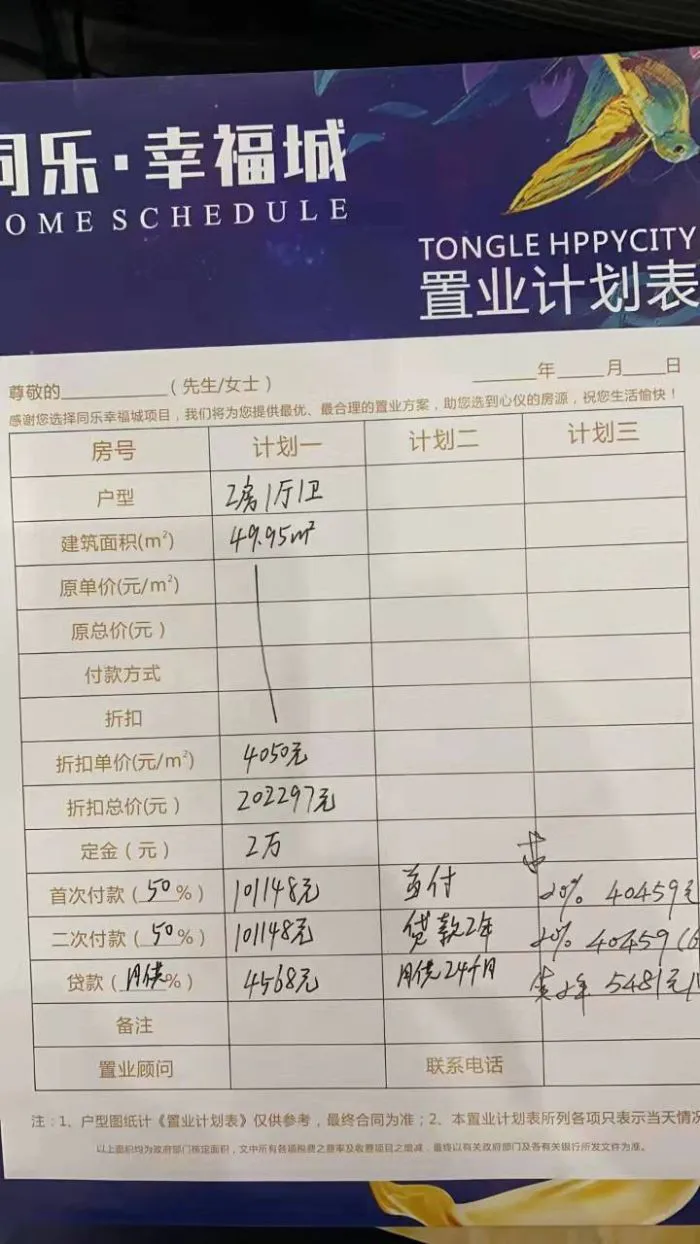 同乐·幸福城
OME SCHEDULE
TONGLE HPPYCITY
置业计划表
尊敬的__________（先生/女士） ______年_____月____日
感谢您选择同乐幸福城项目，我们将为您提供最优、最合理的置业方案，助您选到心仪的房源，祝您生活愉快！
房号 计划一 计划二 计划三
户型 2房1厅1卫
建筑面积(m²) 49.95m²
原单价(元/m²)
原总价(元)
付款方式
折扣
折扣单价(元/m²) 4050元
折扣总价(元) 202297元
定金（元） 2万
首次付款（50%） 101148元 首付 20% 40459元
二次付款（50%） 101148元 贷款2年 20% 40459(6
贷款（月供%） 4568元 月供24个月 2年 5481元/
备注
置业顾问 联系电话
注：1、户型图纸计《置业计划表》仅供参考，最终合同为准；2、本置业计划表所列各项只表示当天情况
以上面积均为政府部门核定面积，文中所有各项税费之费率及收费项目之增减，最终以有关政府部门及各有关银行所发文件为准。